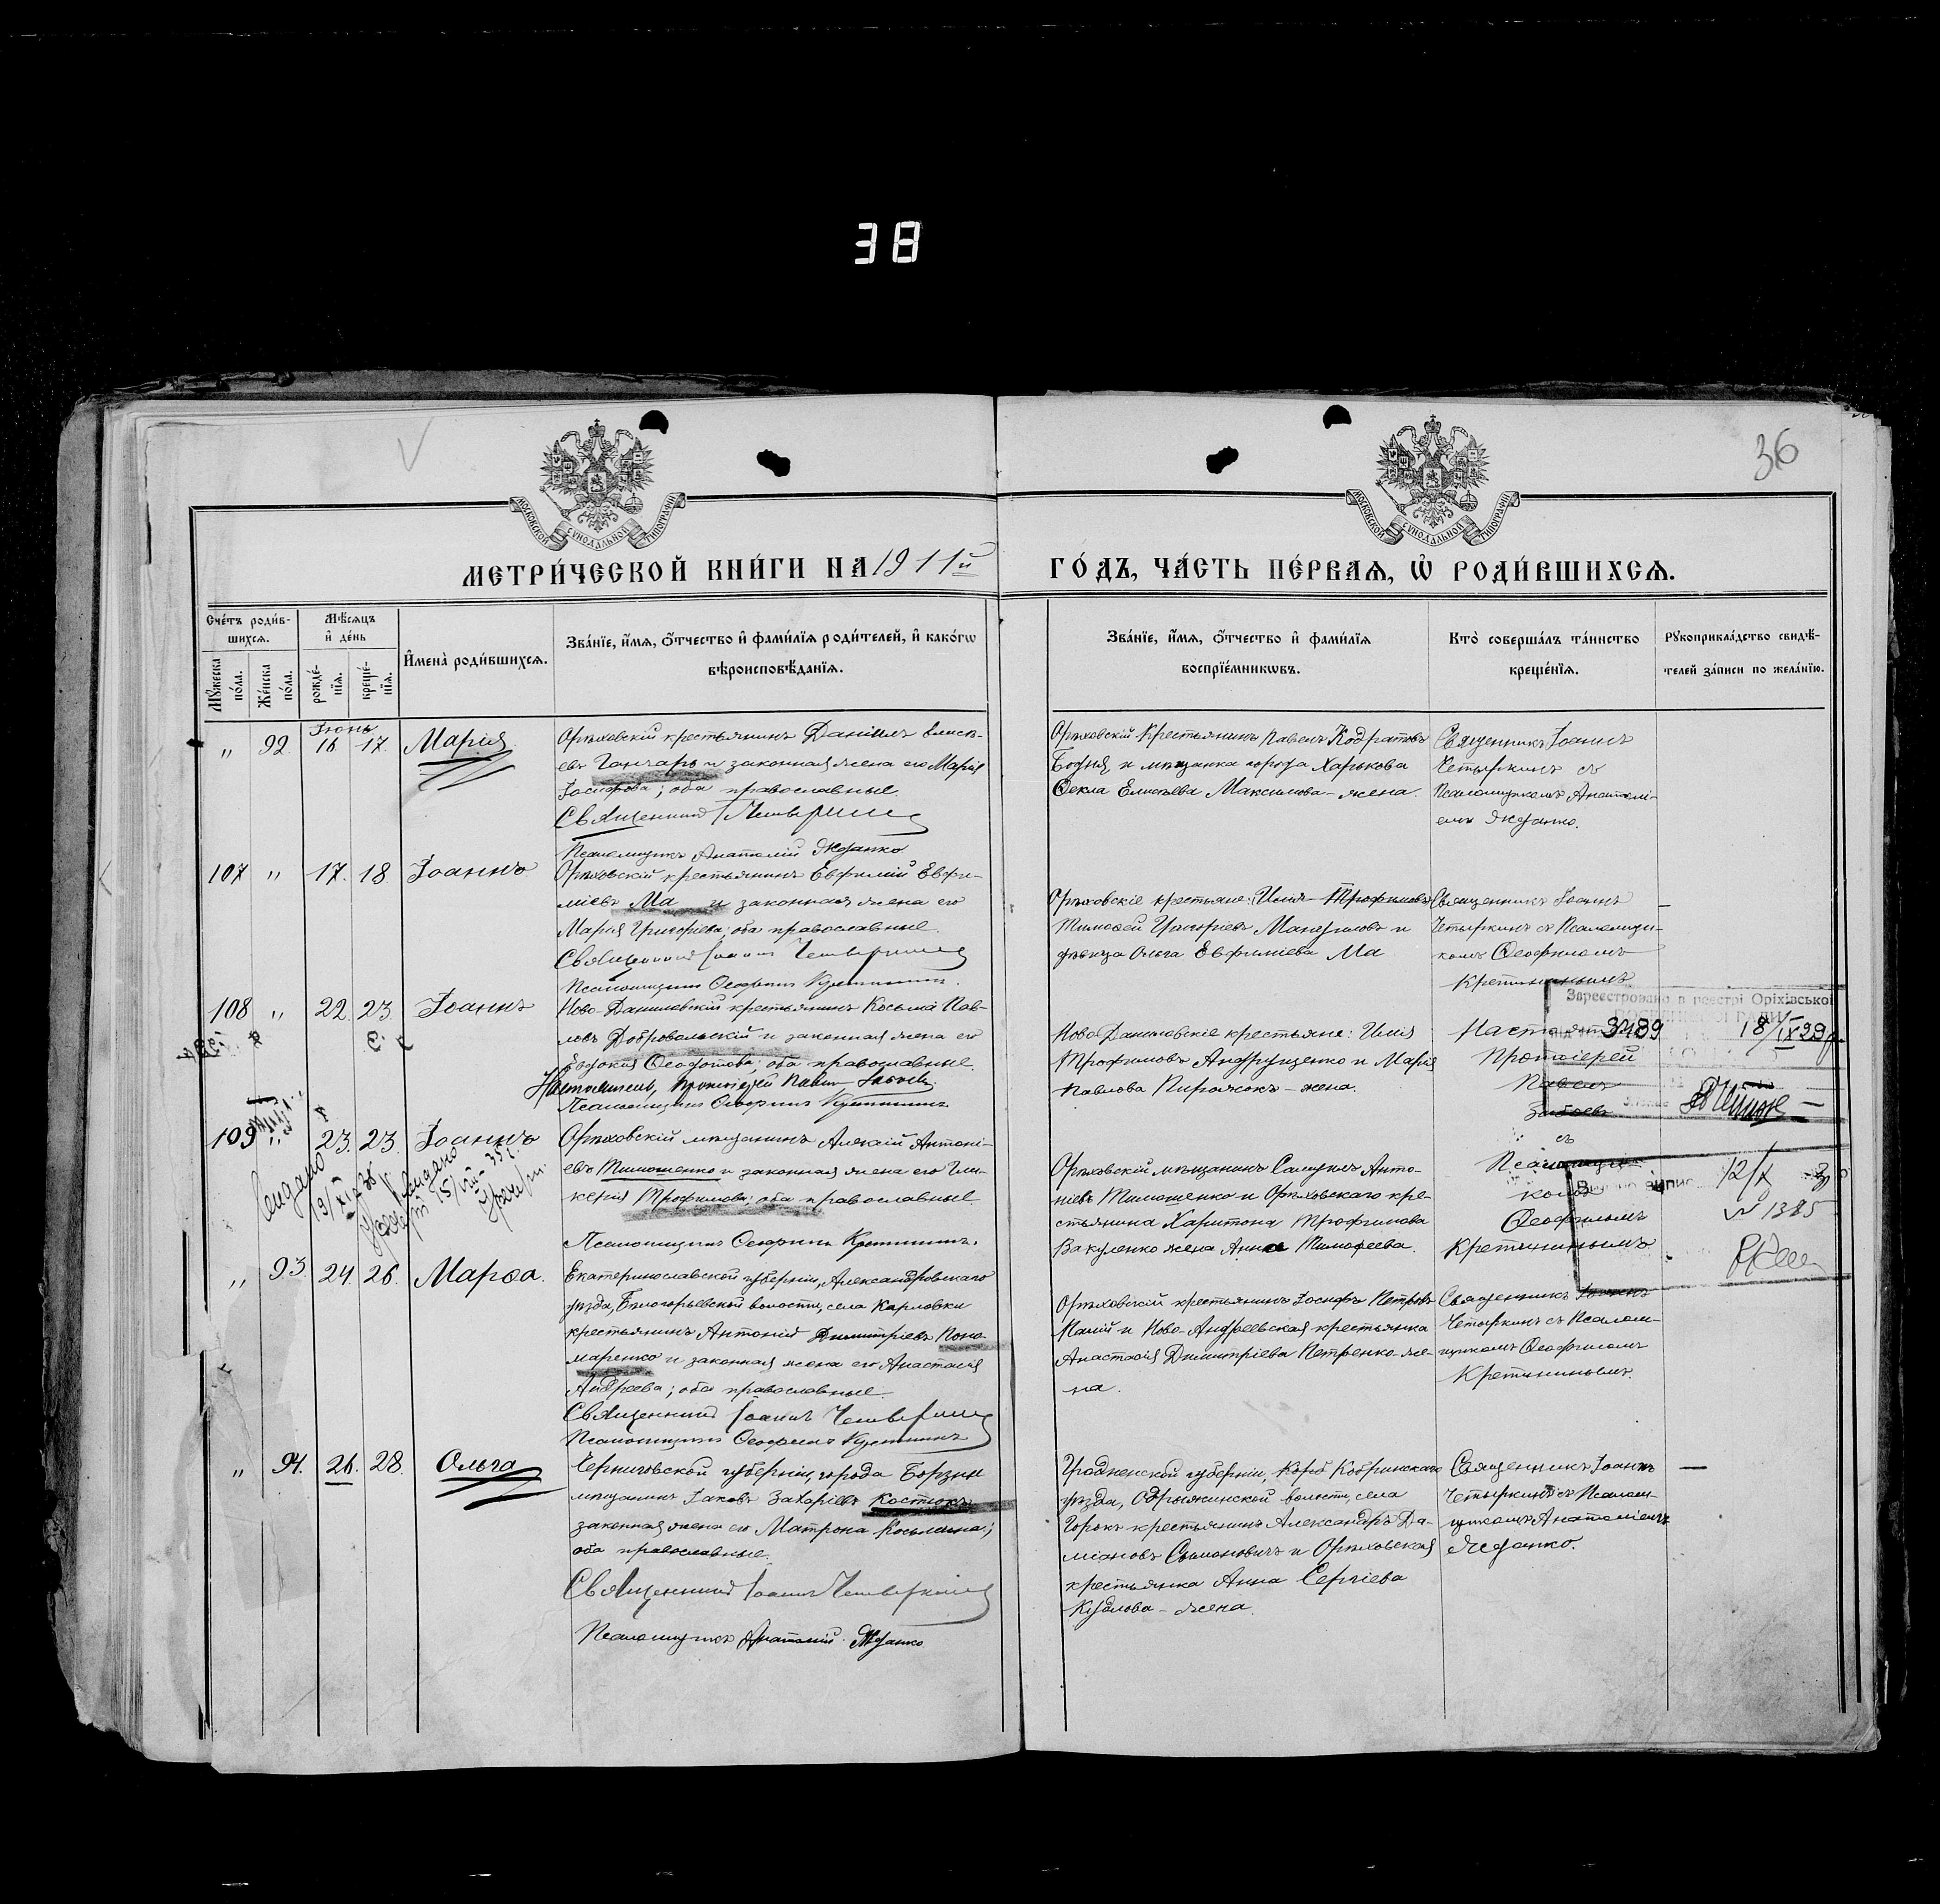 38
36
МОСКОВСКОЙ СѴНОДАЛЬНОЙ ТИПОГРАФІИ
МОСКОВСКОЙ СѴНОДАЛЬНОЙ ТИПОГРАФІИ
МЕТРИ́ЧЕСКОЙ КНИ́ГИ НА 1911й
ГО́ДЪ, ЧА́СТЬ ПЕ́РВАЯ, Ѡ҆ РОДИ́ВШИХСЯ.
Сче́тъ роди́в-
шихся.
Мꙋ́жеска по́ла.
Же́нска по́ла.
Мѣ́сяцъ и҆ де́нь
рожде́-
нїя.
креще́-
нїя.
И҆мена̀ роди́вшихся.
Зва́нїе, и҆́мя, ѻ҆́тчество и҆ фами́лїя роди́телей, и҆ како́гѡ
вѣроисповѣ́данїя.
Зва́нїе, и҆́мя, ѻ҆́тчество и҆ фами́лїя
воспрїе́мникѡвъ.
Кто̀ соверша́лъ та́инство
креще́нїя.
Рꙋкоприкла́дство свидѣ́-
телей за́писи по жела́нїю.
Іюнь
„ 92. 16. 17. Марія
Орѣховскій крестьянинъ Даніилъ Елисѣ-
евъ Гончаръ и законная жена его Марія
Іосифова; оба православные.
Священникъ Четыркинъ
Псаломщикъ Анатолій
Орѣховскій крестьянинъ Павелъ Кодратовъ
Бодня и мѣщанка города Харькова
Ѳекла Елисѣева Максимова - жена.
Священникъ Іоаннъ
Четыркинъ съ
Псаломщикомъ Анатолі-
емъ
107 „ 17. 18. Іоаннъ
Орѣховскій крестьянинъ Евфимій Евфи-
міевъ Ма и законная жена его
Марія Григоріева; оба православные.
Священникъ Іоаннъ Четыркинъ
Псаломщикъ Ѳеофилъ Кретининъ.
Орѣховскіе крестьяне:
Тимофей Григоріевъ и
дѣвица Ольга Евфиміева Ма
Священникъ Іоаннъ
Четыркинъ съ Псаломщи-
комъ Ѳеофиломъ
Кретининымъ
108 „ 22. 23. Іоаннъ
Ново-Даниловскій крестьянинъ Косьма Пав-
ловъ Добровольскій и законная жена его
Евдокія Ѳеодотова; оба православные.
Настоятель, протоіерей Павелъ
Псаломщикъ Ѳеофилъ Кретининъ
Ново-Даниловскіе крестьяне: Илія
Трофимовъ Андрущенко и Марія
Павлова Пирожокъ - жена.
Настоятель
Протоіерей
Павелъ
съ
Псаломщи-
комъ
Ѳеофиломъ
Кретининымъ
Зареєстровано в реєстрі Оріхівської
3489
18/IX 29 р.
109 „ 23. 23. Іоаннъ
Орѣховскій мѣщанинъ Алексій Антоні-
евъ Тимошенко и законная жена его Гли-
керія Трофимова; оба православные.
Псаломщикъ Ѳеофилъ Кретининъ.
Орѣховскій мѣщанинъ Самуилъ Анто-
ніевъ Тимошенко и Орѣховскаго кре-
стьянина Харитона Трофимова
Вакуленко жена Анна Тимофеева.
12/X
№ 1385
„ 93 24. 26. Марѳа.
Екатеринославской губерніи, Александровскаго
уѣзда, Бѣлогорьевской волости, села Карловки
крестьянинъ Антоній Димитріевъ Поно-
маренко и законная жена его Анастасія
Андреева; оба православные.
Священникъ Іоаннъ Четыркинъ
Псаломщикъ Ѳеофилъ Кретининъ
Орѣховскій крестьянинъ Іосифъ Петровъ
и Ново-Андреевская крестьянка
Анастасія Димитріева Петренко-же-
на.
Священникъ Іоаннъ
Четыркинъ съ Псалом-
щикомъ Ѳеофиломъ
Кретининымъ.
„ 94. 26. 28. Ольга
Черниговской губерніи, города Борзны
мѣщанинъ Іаковъ Захаріевъ Костюкъ
законная жена его Матрона Косьмина;
оба православные.
Священникъ Іоаннъ Четыркинъ
Псаломщикъ Анатолій
Гродненской губерніи, Кобринскаго
уѣзда, Одрижинской волости, села
крестьянинъ Александръ Да-
міановъ Симоновичъ и Орѣховская
крестьянка Анна Сергіева
жена.
Священникъ Іоаннъ
Четыркинъ съ Псалом-
щикомъ Анатоліемъ